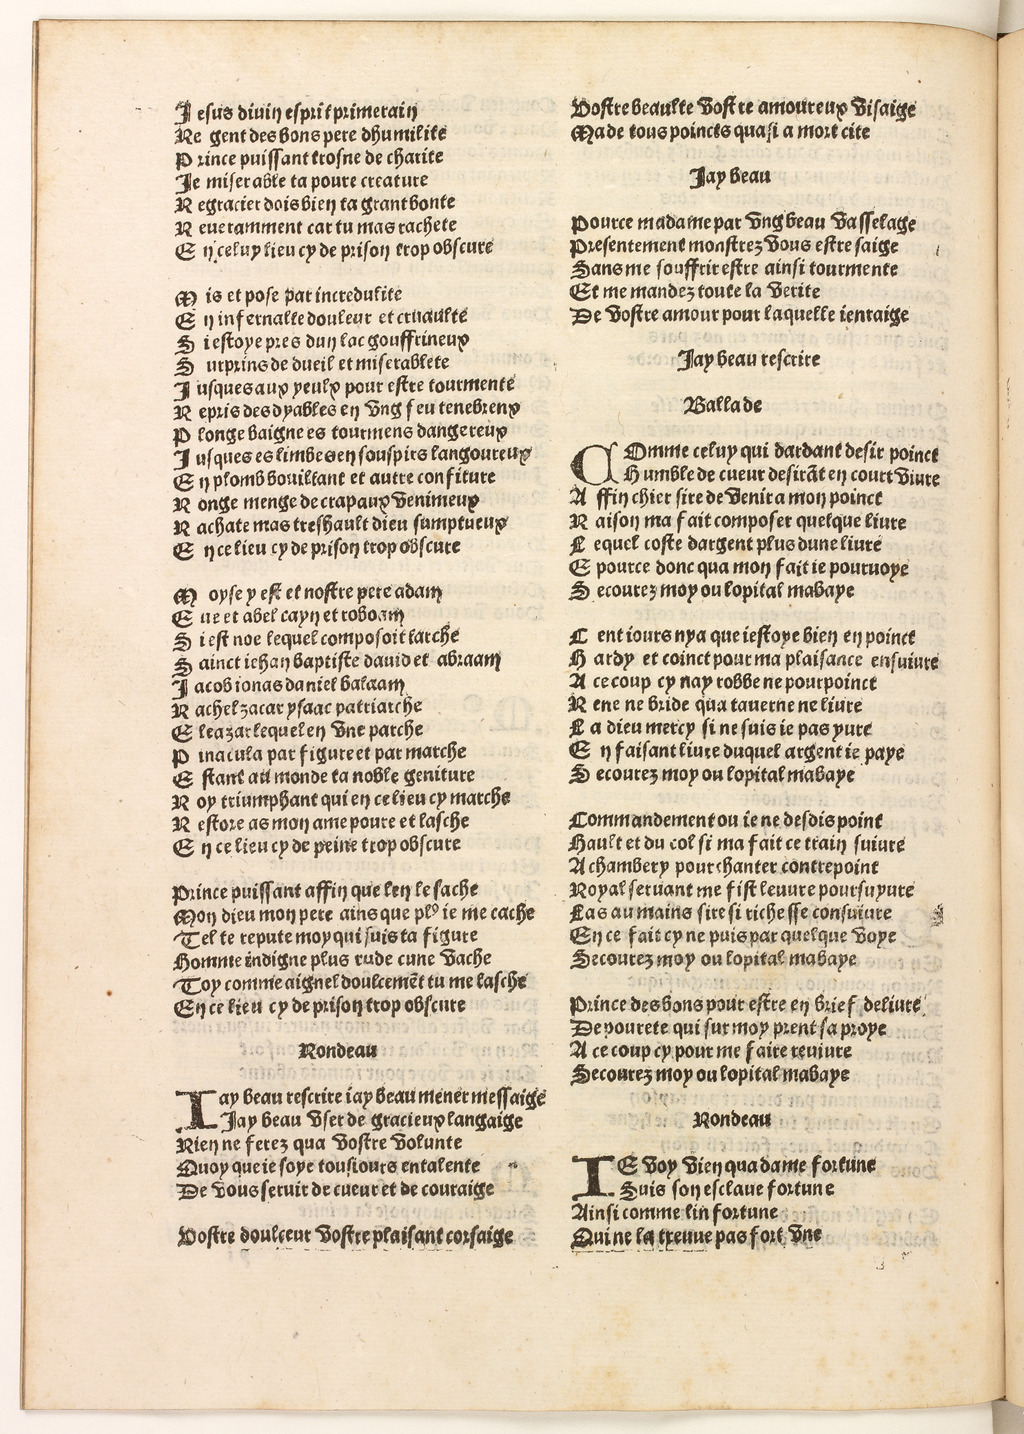 Jesus diuin esprit primerain
Regent des bons pere dhumilite
Prince puissant trosne de charite
Je miserable ta poure creature
Regracier dois bien ta grant bonte
Reueramment car tu mas rachete
En celuy lieu cy de prison trop obscure
Mis et pose par incredulite
En infernalle douleur et cruaulte
Si estoye pres dun lac gouffrineux
Surprins de dueil et miserablete
Jusques aux yeulx pour estre tourmente
Repris des dyables en vng feu tenebreux
Plonge baigne es tourmens dangereux
Jusques es limbes en souspirs langoureux
En plomb bouillant et autre confiture
Ronge menge de crapaux venimeux
Rachate mas treshault dieu sumptueux
En ce lieu cy de prison trop obscure
Moyse y est et nostre pere adam
Eue et abel cayn et roboam
Si est noe lequel composoit larche
Sainct iehan baptiste dauid et abraam
Jacob ionas daniel balaam
Rachel zacar ysaac patriarche
Eleazar lequel en vne parche
Pinacula par figure et par marche
Estant au monde ta noble geniture
Roy triumphant qui en ce lieu cy marche
Restore as mon ame poure et lasche
En ce lieu cy de peine trop obscure
Prince puissant affin que len le sache
Mon dieu mon pere ains que plꝰ ie me cache
Tel te repute moy qui suis ta figure
Homme indigne plus rude cune vache
Toy comme aignel doulcemēt tu me lasche
En ce lieu cy de prison trop obscure
Rondeau
Iay beau rescrire iay beau mener messaige
Jay beau vser de gracieux langaige
Rien ne ferez qua vostre volunte
Quoy que ie soye tousiours entalente
De vous seruir de cueur et de couraige
Vostre doulceur vostre plaisant corsaige
Vostre beaulte vostre amoureux visaige
Ma de tous poincts quasi a mort cite
Jay beau
Pource madame par vng beau vasselage
Presentement monstrez vous estre saige
Sans me souffrir estre ainsi tourmente
Et me mandez toute la verite
De vostre amour pour laquelle ienraige
Jay beau rescrire
Ballade
COmme celuy qui dardant desir poinct
Humble de cueur desirāt en court viure
Affin chier sire de venir a mon poinct
Raison ma fait composer quelque liure
Lequel coste dargent plus dune liure
E pource donc qua mon fait ie pouruoye
Secourez moy ou lopital mabaye
Cent iours nya que iestoye bien en poinct
Hardy et coinct pour ma plaisance ensuiure
A ce coup cy nay robbe ne pourpoinct
Rene ne bride qua tauerne ne liure
La dieu mercy si ne suis ie pas yure
En faisant liure duquel argent ie paye
Secourez moy ou lopital mabaye
Commandement ou ie ne desdis point
Hault et du col si ma fait ce train suiure
A chambery pour chanter contrepoint
Royal seruant me fist leuure poursuyure
Las au mains sire si richesse consuiure
En ce fait cy ne puis par quelque voye
Secourez moy ou lopital mabaye
Prince des bons pour estre en brief deliure
De pourete qui sur moy prent sa proye
A ce coup cy pour me faire reuiure
Secourez moy ou lopital mabaye
Rondeau
IE voy bien qua dame fortune
Suis son esclaue fortune
Ainsi comme linfortune
Qui ne la treuue pas fort vne